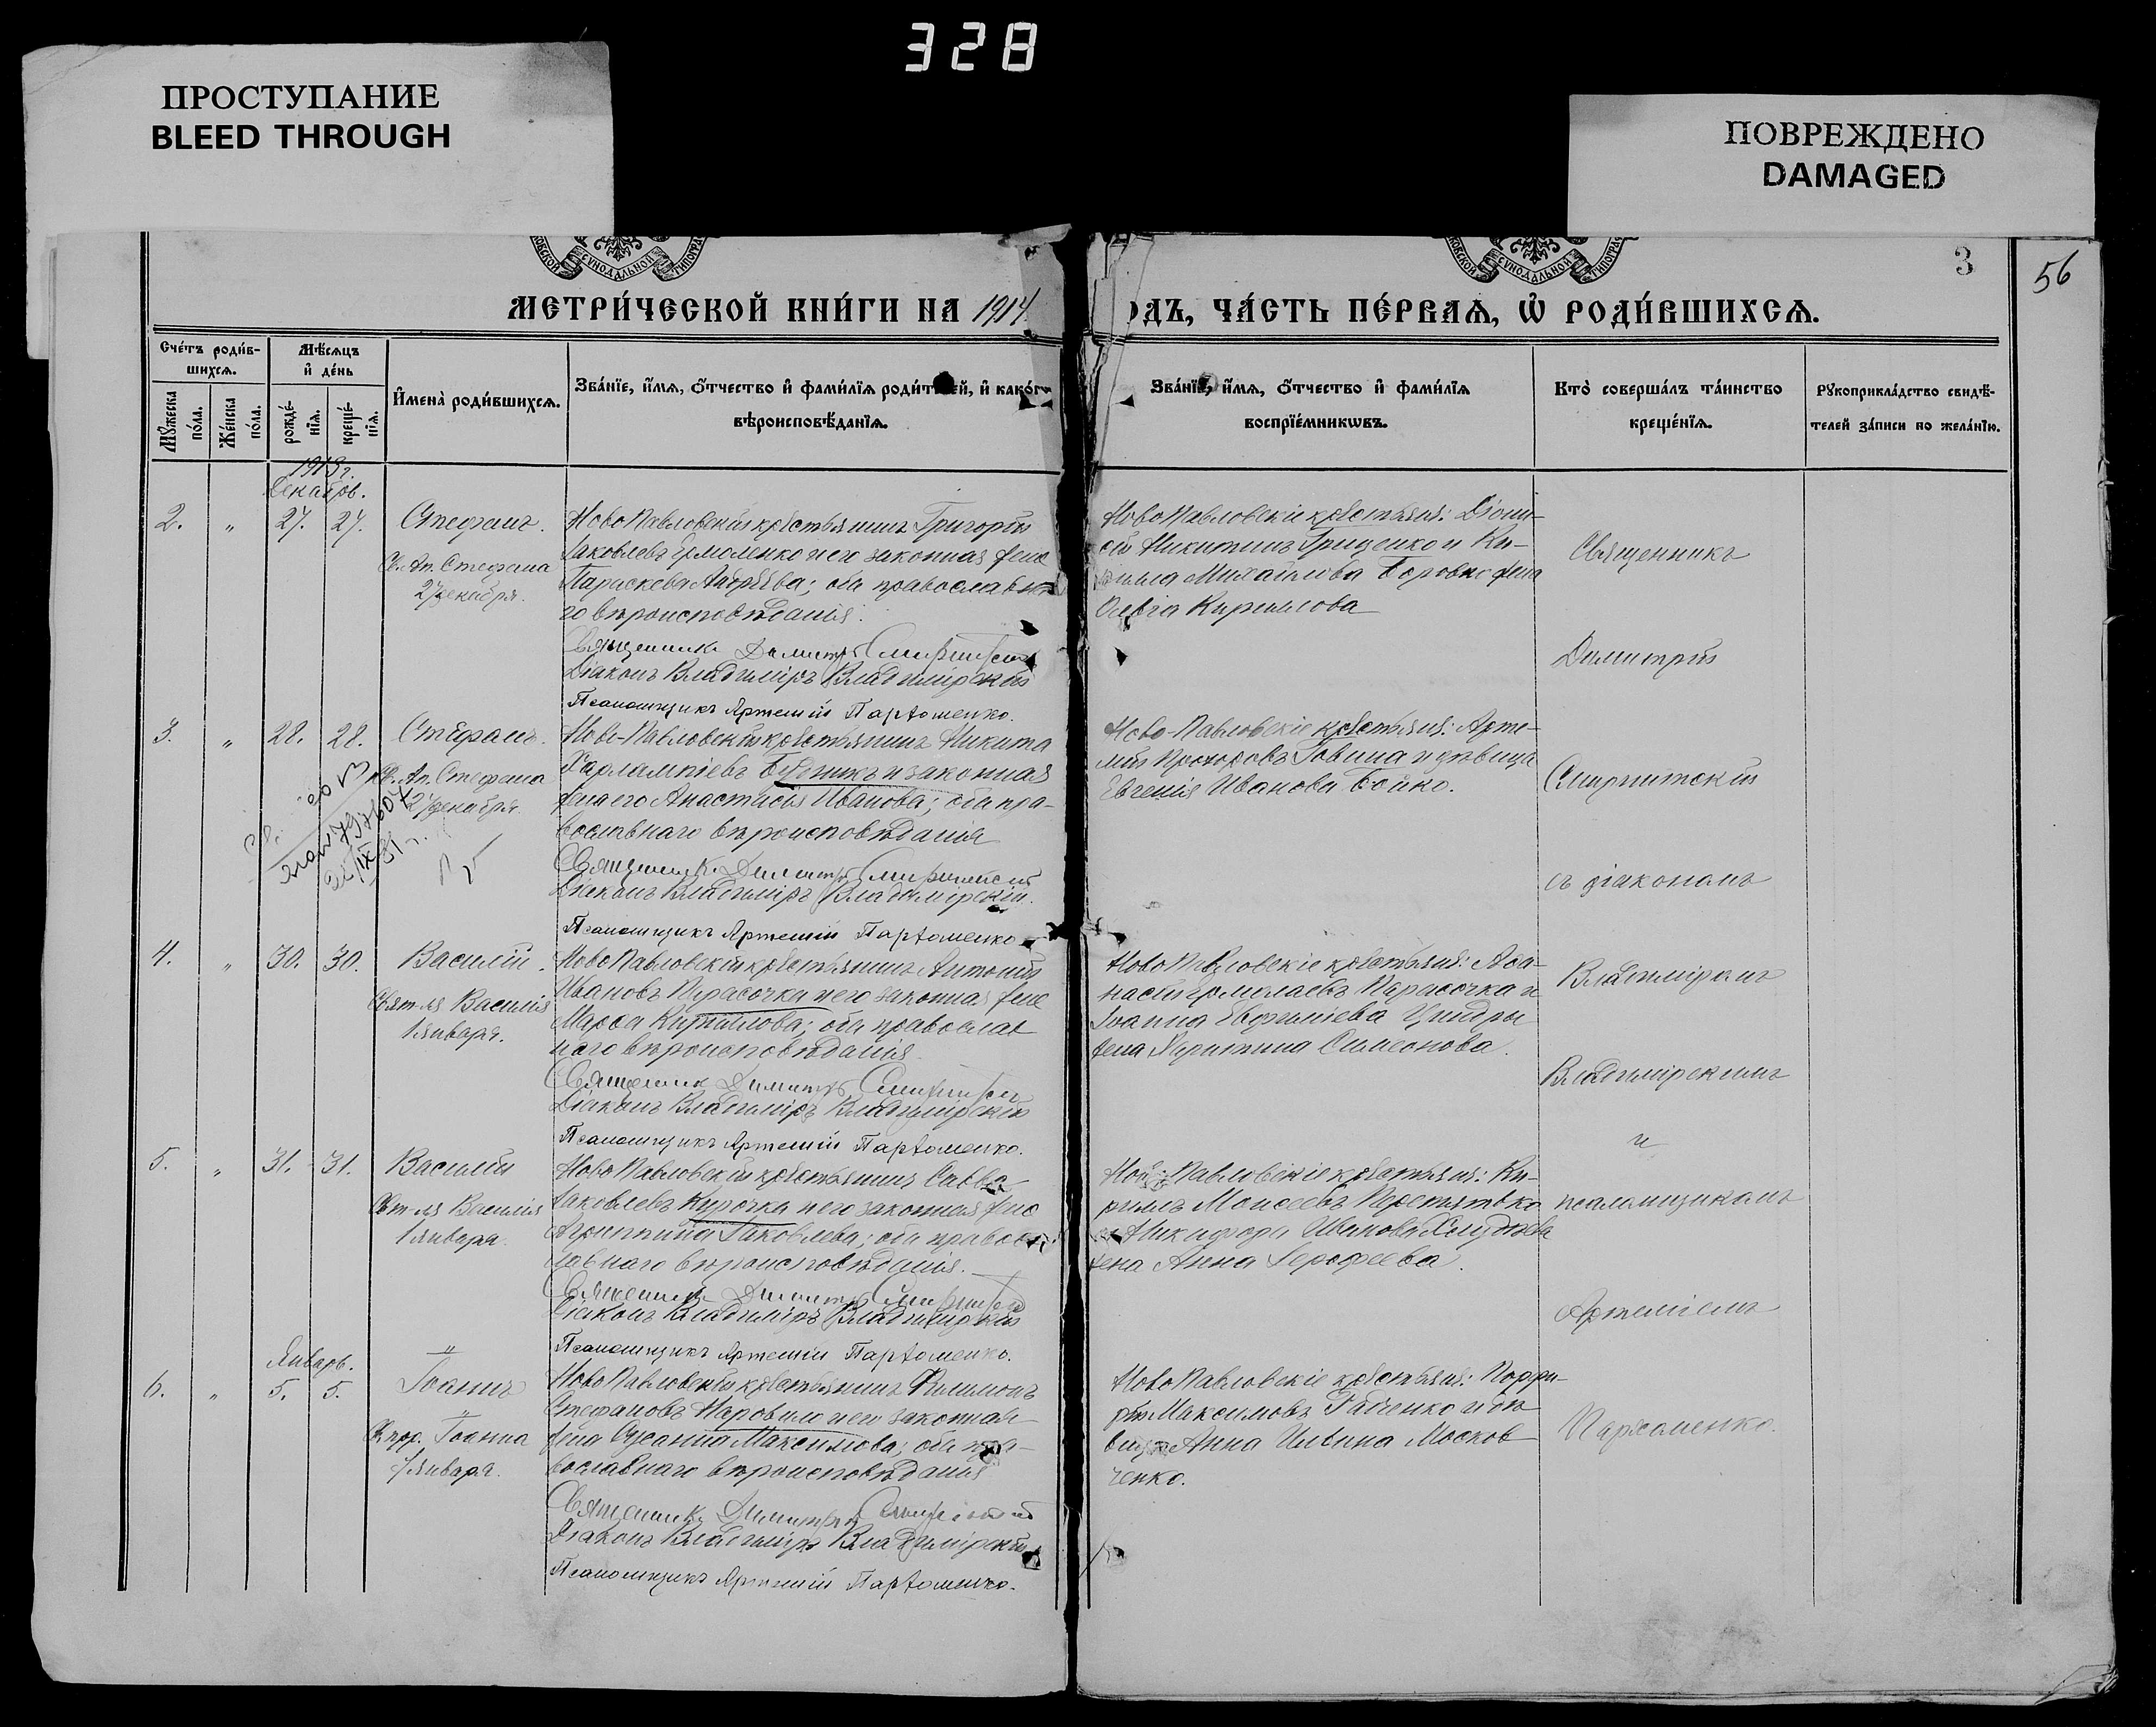 328
ПРОСТУПАНИЕ
BLEED THROUGH
ПОВРЕЖДЕНО
DAMAGED
3
56
МЕТРИ́ЧЕСКОЙ КНИ́ГИ НА 1914
ОДЪ, ЧА́СТЬ ПЕ́РВАѦ, Ѡ҆ РОДИ́ВШИХСѦ.
Сче́тъ роди́в-
шихсѧ.
Мѣ́сѧцъ
и҆ де́нь
Мꙋ́жеска
по́ла.
Же́нска
по́ла.
рожде́-
нїѧ.
креще́-
нїѧ.
И҆мена̀ роди́вшихсѧ.
Зва́нїе, и҆́мѧ, ѻ҆́тчество и҆ фами́лїѧ роди́телей, и҆ како́гѡ
вѣроисповѣ́данїѧ.
Зва́нїе, и҆́мѧ, ѻ҆́тчество и҆ фами́лїѧ
воспрїе́мникѡвъ.
Кто̀ соверша́лъ та́инство
креще́нїѧ.
Рꙋкоприкла́дство свидѣ́-
телей за́писи по жела́нїю.
1913 г.
Декабрь.
2. " 27. 27. Стефанъ.
Св. Ап. Стефана
27 декабря.
НовоПавловскій крестьянинъ Григорій
Іаковлевъ Ермоленко и его законная жена
Параскева Андреева; оба православна-
го вѣроисповѣданія.
Священникъ Димитрій
Діаконъ Владиміръ Владимірскій
Псаломщикъ Артемій Пархоменко.
НовоПавловскіе крестьяне: Діони-
сій Никитинъ Гриценко и Ки-
рилла Михайлова жена
Ольга Кириллова
3. " 28. 28. Стефанъ.
Св. Ап. Стефана
27 декабря.
Ново-Павловскій крестьянинъ Никита
Харлампіевъ и законная
жена его Анастасія Иванова; оба пра-
вославнаго вѣроисповѣданія
Священникъ Димитрій
Діаконъ Владиміръ Владимірскій.
Псаломщикъ Артемій Пархоменко
Ново-Павловскіе крестьяне: Арте-
мій Прохоровъ и дѣвица
Евгенія Иванова Бойко.
4. " 30. 30. Василій.
Свят-ля Василія
1 января.
НовоПавловскій крестьянинъ Антоній
Ивановъ Парасочка и его законная жена
Марѳа Кириллова; оба православ-
наго вѣроисповѣданія
Священникъ Димитрій
Діаконъ Владиміръ Владимірскій
Псаломщикъ Артемій Пархоменко.
НовоПавловскіе крестьяне: Аѳа-
насій Ермолаевъ Парасочка и
Іоанна
жена Харитина Симеонова.
5. " 31. 31. Василій
Свят-ля Василія
1 января
НовоПавловскій крестьянинъ Савва
Іаковлевъ Курочка и его законная жена
Агриппина Іаковлева; оба правос-
лавнаго вѣроисповѣданія.
Священникъ Димитрій
Діаконъ Владиміръ Владимірскій
Псаломщикъ Артемій Пархоменко.
Ново-Павловскіе крестьяне: Ки-
риллъ Моисеевъ
и Никифора Иванова
жена Анна Іерофеева.
Январь.
6. " 5. 5. Іоаннъ
Св. прр. Іоанна
7 января.
НовоПавловскій крестьянинъ Филимонъ
Стефановъ и его законная
жена Сусанна Максимова; оба пра-
вославнаго вѣроисповѣданія
Священникъ Димитрій
Діаконъ Владиміръ Владимірскій
Псаломщикъ Артемій Пархоменко.
НовоПавловскіе крестьяне: Порфи-
рій Максимовъ и дѣ-
вица Анна Ильина Москов
ченко.
Священникъ
Димитрій
съ діакономъ
Владиміромъ
Владимірскимъ
и
псаломщикомъ
Артеміемъ
Пархоменко.